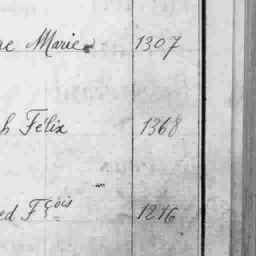 ac Marie 1307
h Félix 1368
ed Fçois 1216